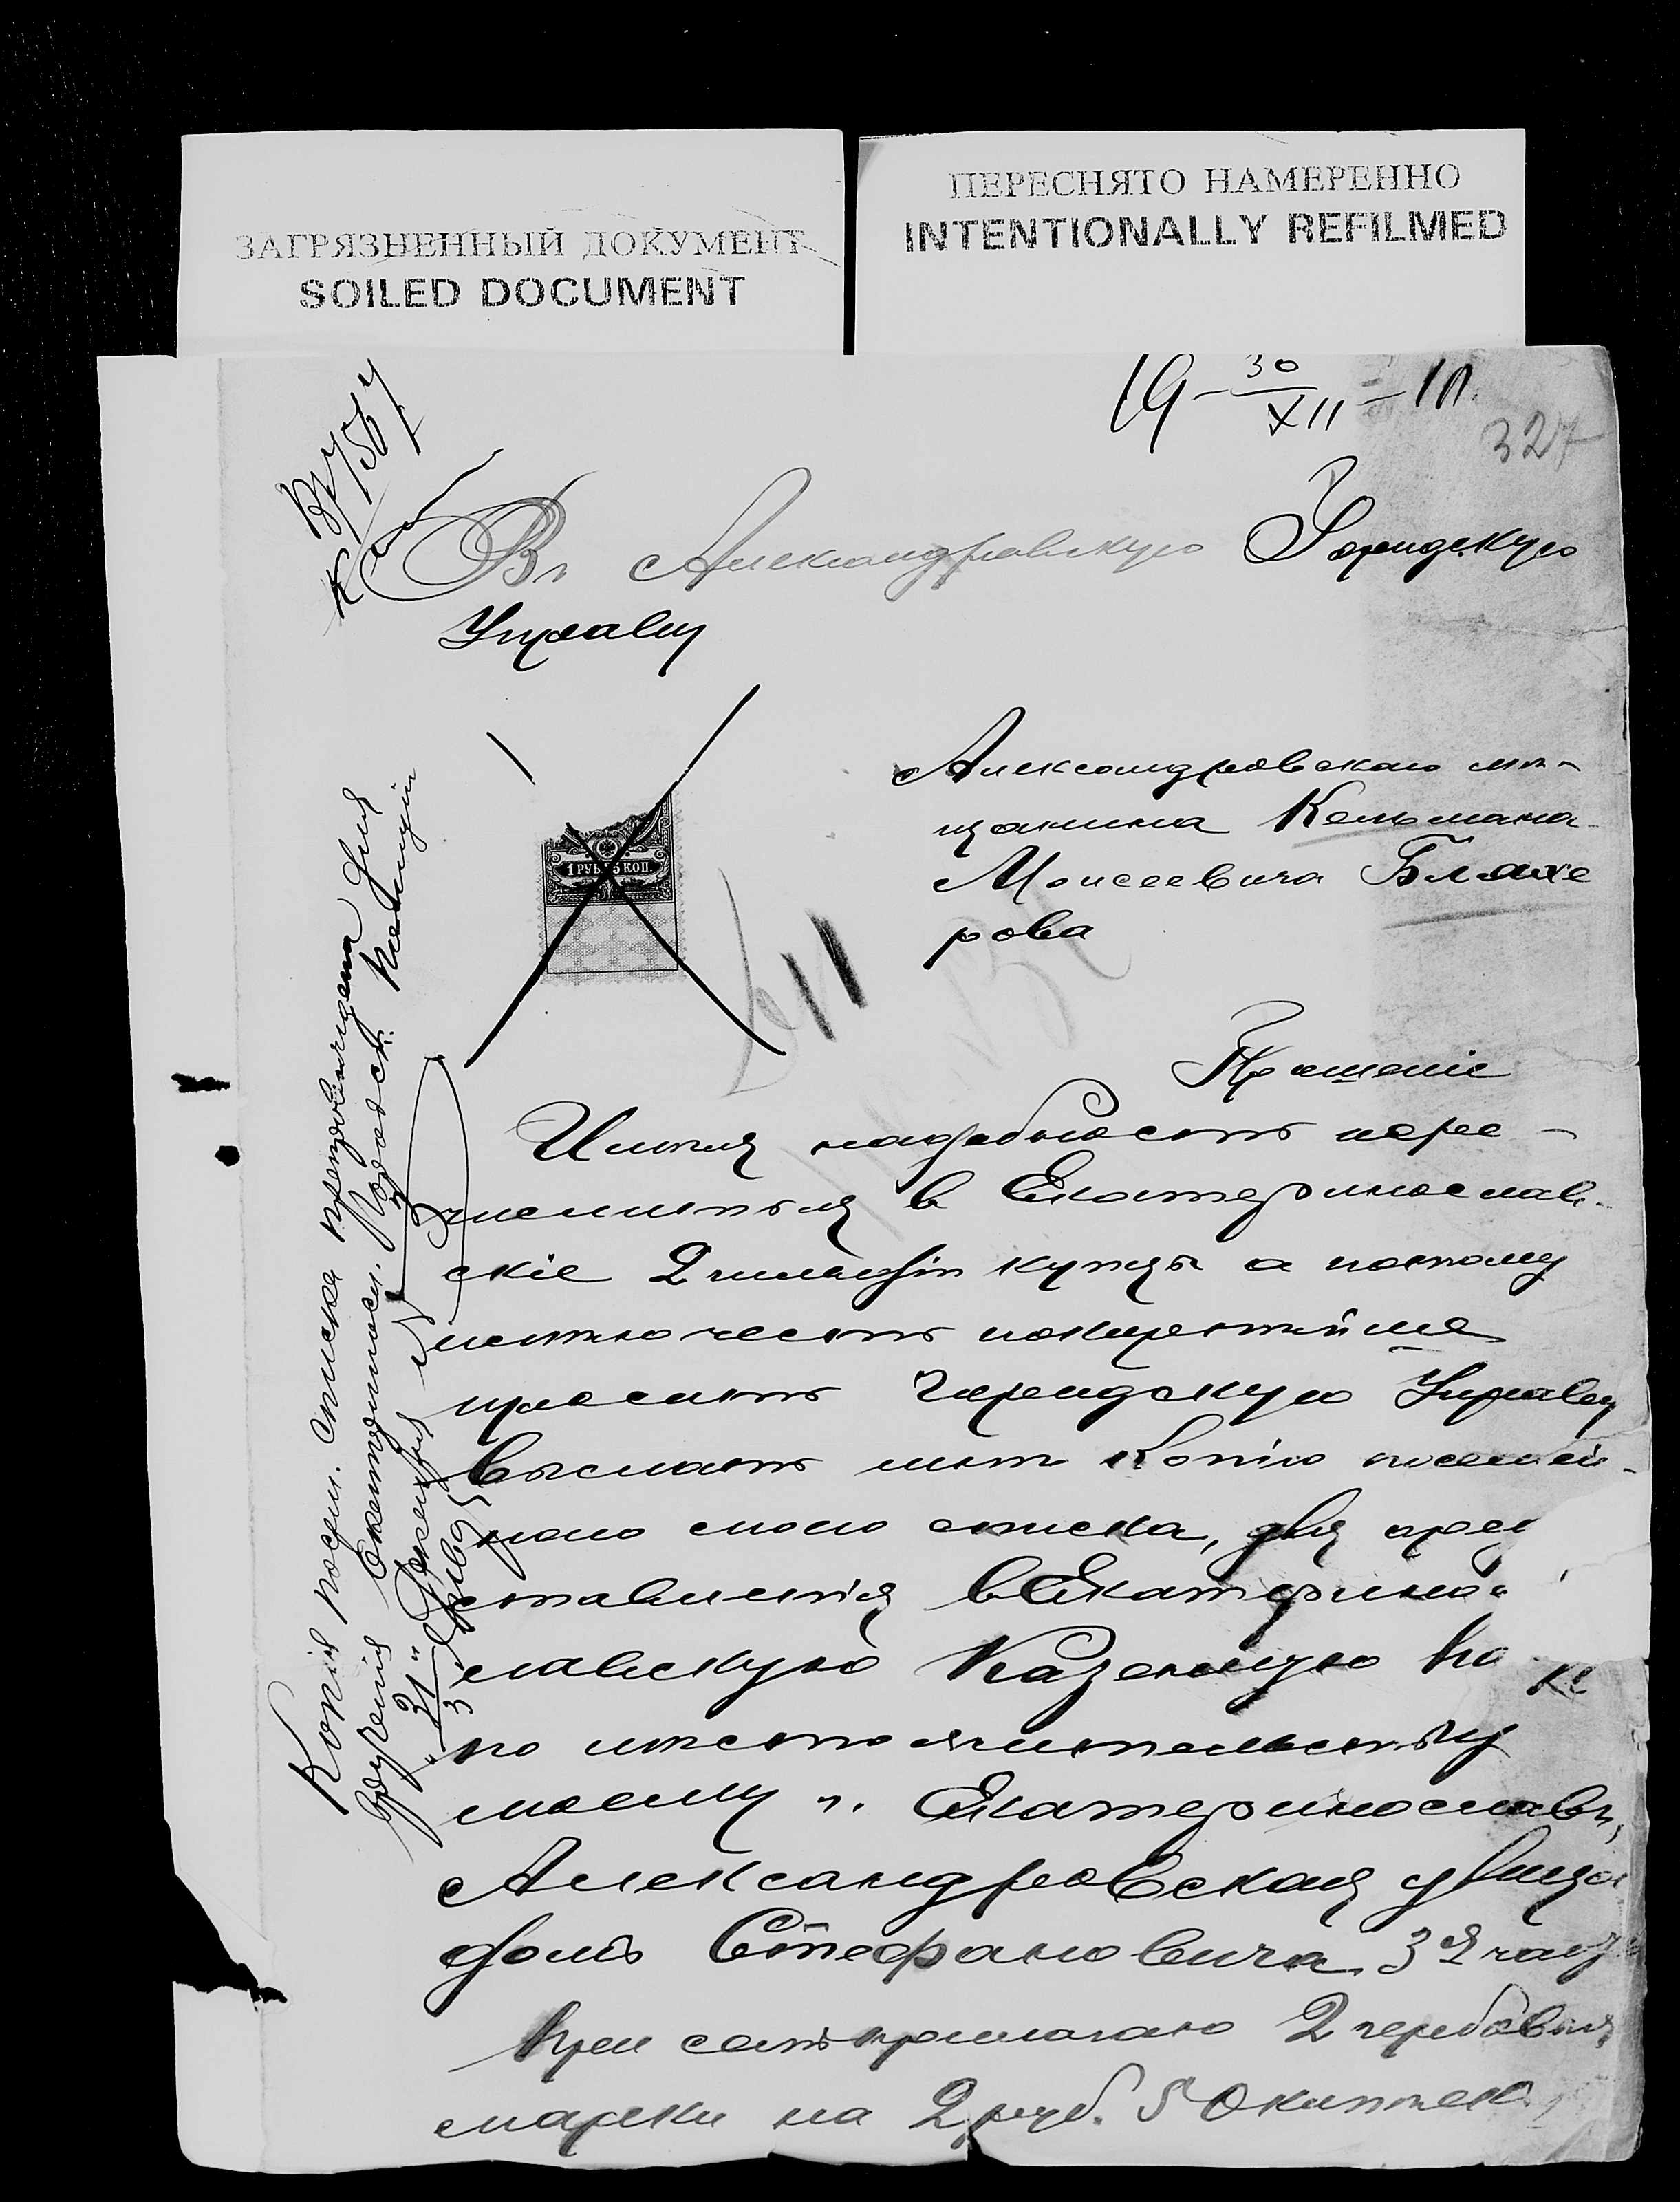 ЗАГРЯЗНЕННЫЙ ДОКУМЕНТ
SOILED DOCUMENT
ПЕРЕСНЯТО НАМЕРЕННО
INTENTIONALLY REFILMED
19-30/XII-10.
327
Въ Александровскую Городскую
Управу
Александровскаго мѣ-
щанина Кельмана
Моисеевича Блохе
рова
1 РУБ. 25 КОП.
Прошеніе
Имѣя надобность пере-
числиться в Екатеринослав-
скіе 2 гильдіи купцы а потому
имѣю честь покорнѣйше
просить Городскую Управу
выслать мнѣ Копію посемей-
наго моего списка, для пред
ставленія в Екатерино
славскую Казенную Па
по мѣстожительству
моему г. Екатеринославъ,
Александровская улица
домъ Стефановича 3я част
При семъ прилагаю 2 гербовыя
марки на 2 руб. 50 копѣек
Копія посем. списка препровождена для
врученія Екатеринос. Городск. Полиціи
"31" Декабря